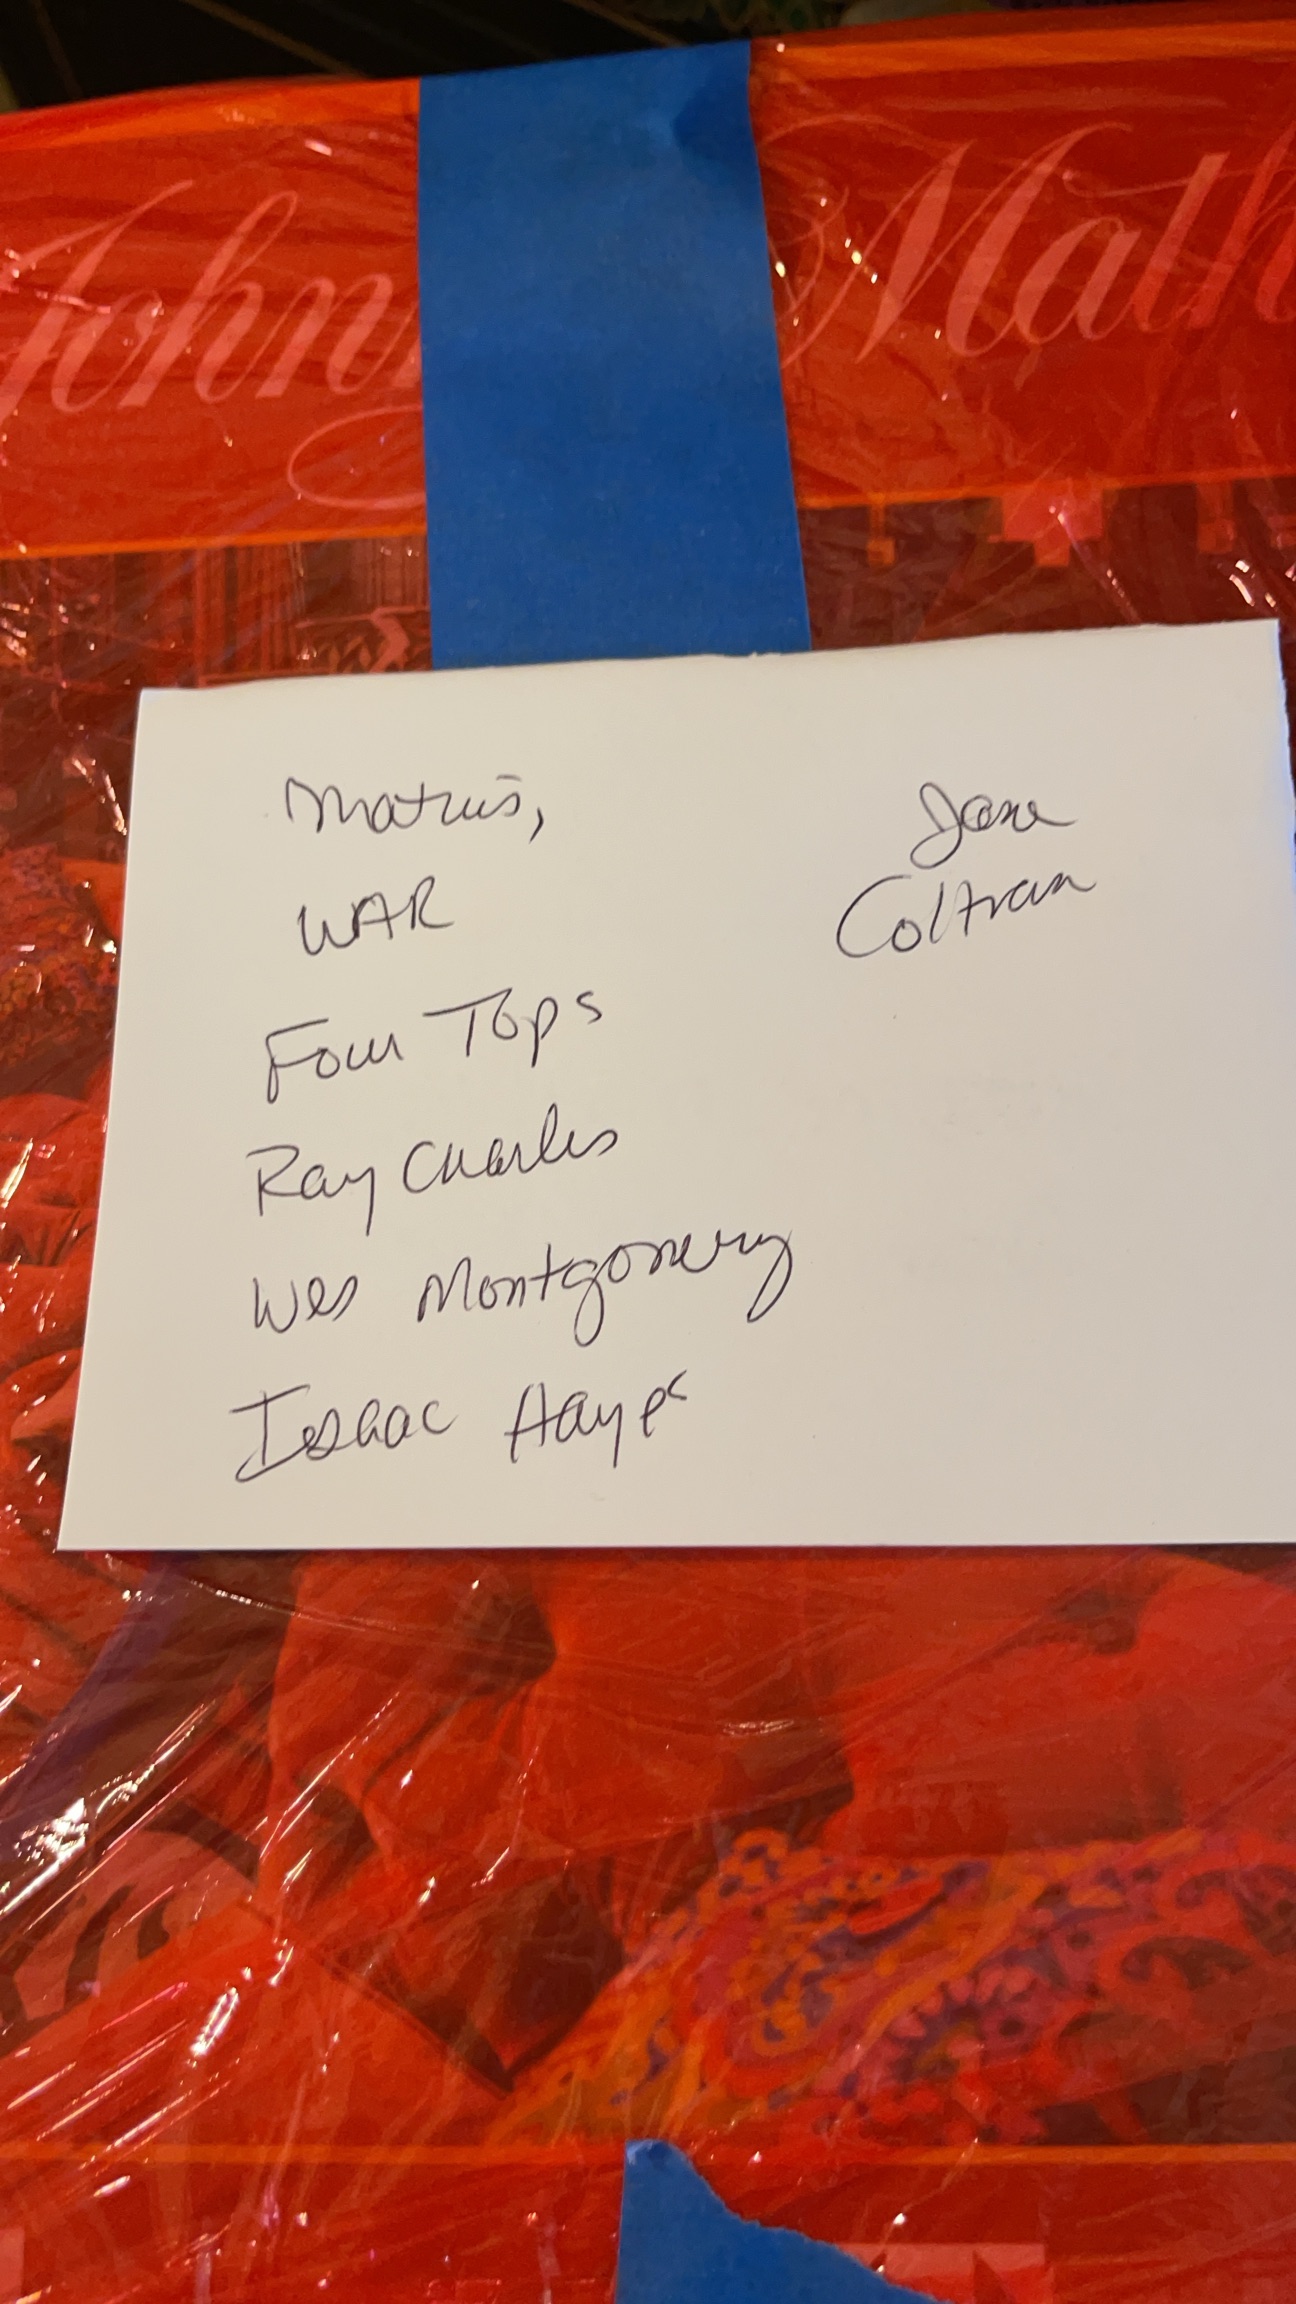 Johnny Math
Mathis,
WAR
Four Tops
Ray Charles
Wes Montgomery
Isaac Hayes
Jane
Coltran